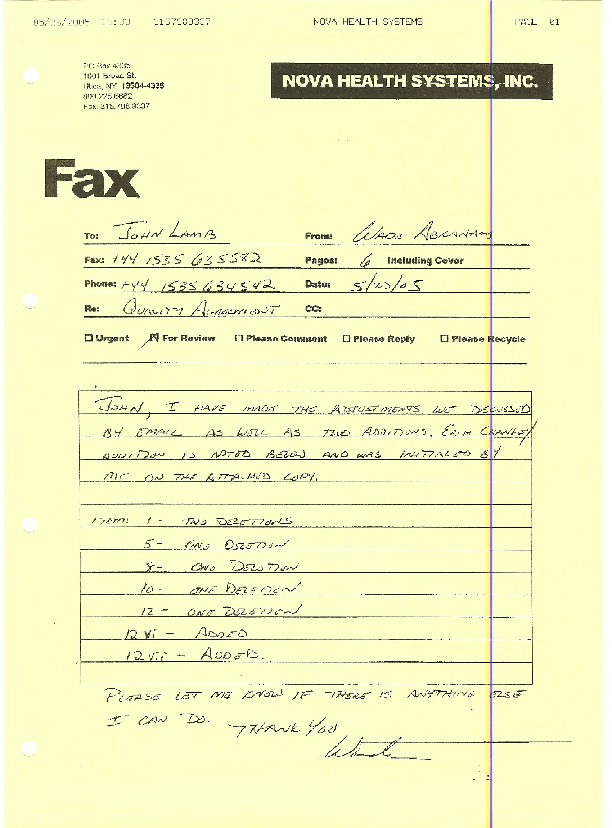 NOVA HEALTH SYSTEMS PAGE 01
PO Box 4335
1001 Broad St.
Utica, NY 13504-4335
NOVA HEALTH SYSTEMS, INC.
Fax
To: JOHN LAMB From: WADE
Fax: +44 1535 635582 Pages: 6 Including Cover
Phone: +44 1535 634542 Date:
Re: QUALITY AGREEMENT CC:
Urgent For Review Please Comment Please Reply Please Recycle
JOHN, I HAVE MADE THE ADJUSTMENTS WE DISCUSSED
BY EMAIL AS WELL AS TWO ADDITIONS. EACH CHANGE/
ADDITION IS NOTED BELOW AND WAS INITIALED BY
ME ON THE ATTACHED COPY.
ITEM: 1 - TWO DELETIONS
5 - ONE DELETION
8 - ONE DELETION
10 - ONE DELETION
12 - ONE DELETION
12 vi - ADDED
12 vii - ADDED.
PLEASE LET ME KNOW IF THERE IS ANYTHING ELSE
I CAN DO.
THANK YOU